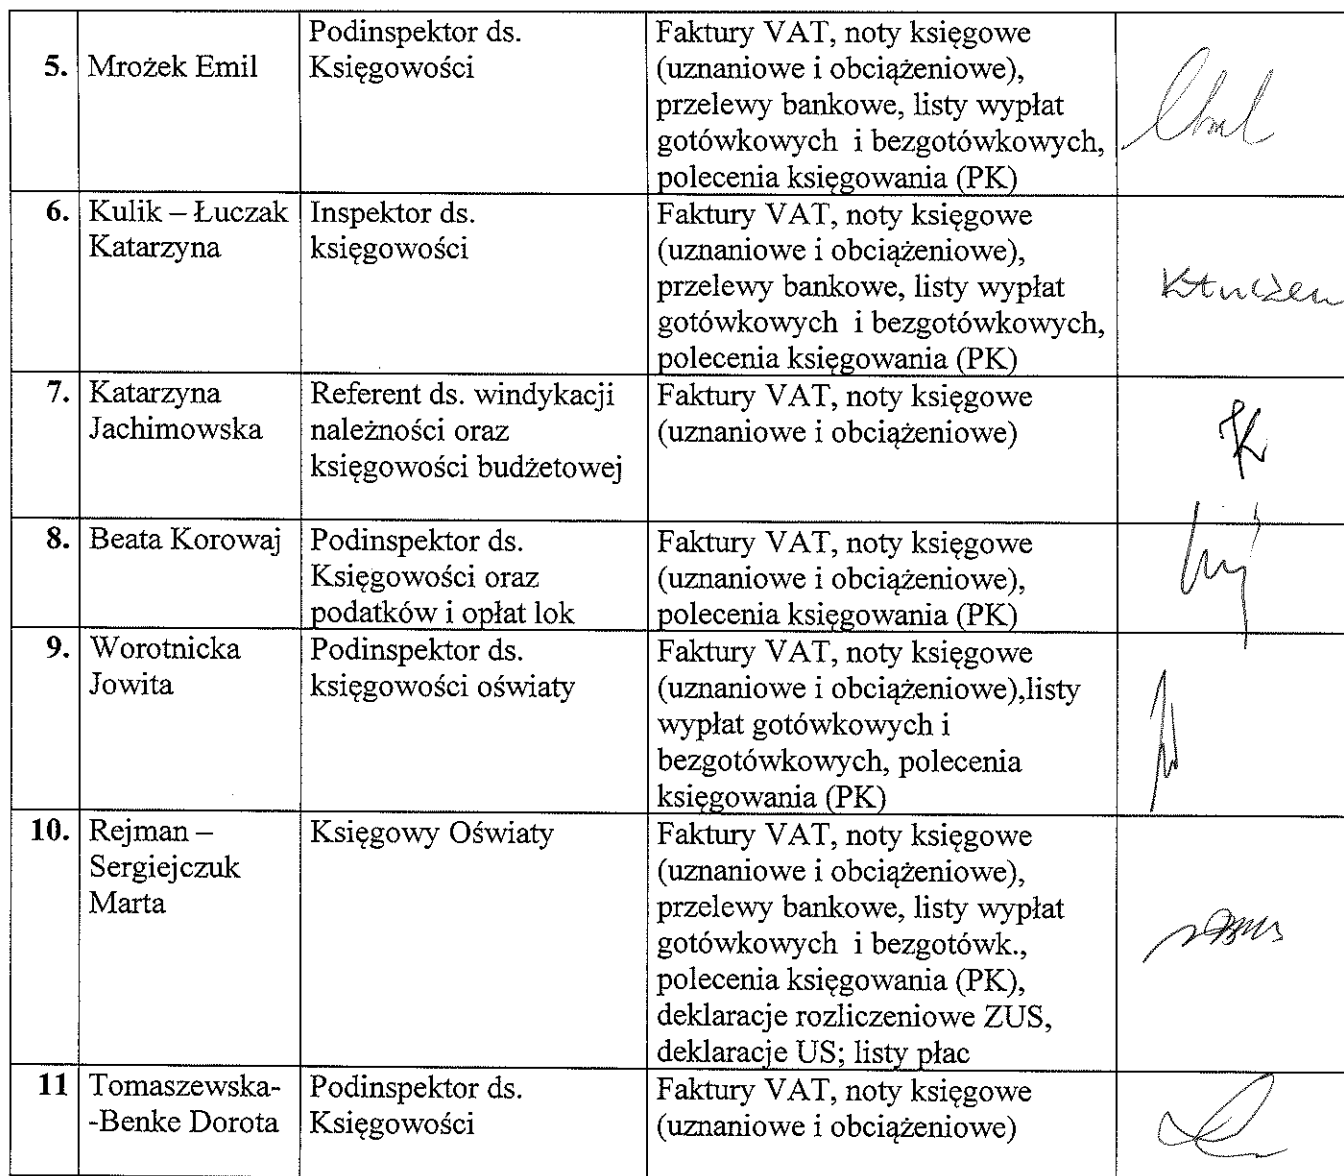 5. Mrożek Emil
Podinspektor ds.
Księgowości
Faktury VAT, noty księgowe
(uznaniowe i obciążeniowe),
przelewy bankowe, listy wypłat
gotówkowych i bezgotówkowych,
polecenia księgowania (PK)
6. Kulik – Łuczak
Katarzyna
Inspektor ds.
księgowości
Faktury VAT, noty księgowe
(uznaniowe i obciążeniowe),
przelewy bankowe, listy wypłat
gotówkowych i bezgotówkowych,
polecenia księgowania (PK)
7. Katarzyna
Jachimowska
Referent ds. windykacji
należności oraz
księgowości budżetowej
Faktury VAT, noty księgowe
(uznaniowe i obciążeniowe)
8. Beata Korowaj
Podinspektor ds.
Księgowości oraz
podatków i opłat lok
Faktury VAT, noty księgowe
(uznaniowe i obciążeniowe),
polecenia księgowania (PK)
9. Worotnicka
Jowita
Podinspektor ds.
księgowości oświaty
Faktury VAT, noty księgowe
(uznaniowe i obciążeniowe),listy
wypłat gotówkowych i
bezgotówkowych, polecenia
księgowania (PK)
10. Rejman –
Sergiejczuk
Marta
Księgowy Oświaty
Faktury VAT, noty księgowe
(uznaniowe i obciążeniowe),
przelewy bankowe, listy wypłat
gotówkowych i bezgotówk.,
polecenia księgowania (PK),
deklaracje rozliczeniowe ZUS,
deklaracje US; listy płac
11 Tomaszewska-
-Benke Dorota
Podinspektor ds.
Księgowości
Faktury VAT, noty księgowe
(uznaniowe i obciążeniowe)